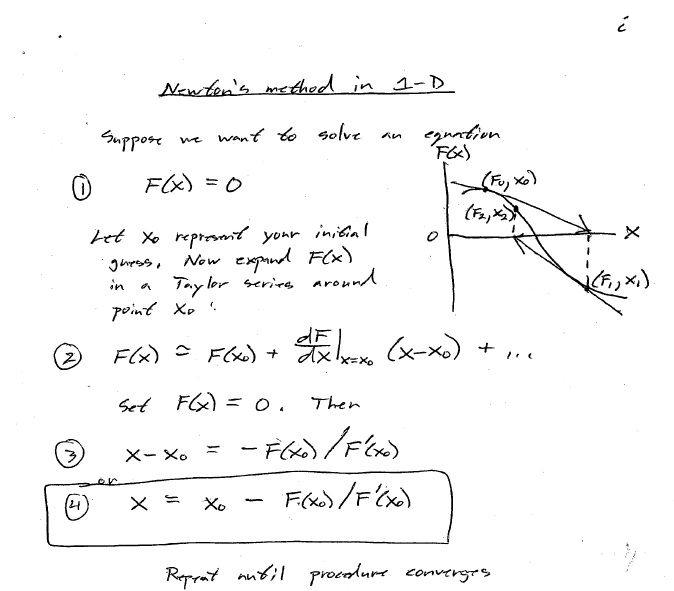 i
Newton's method in 1-D
Suppose we want to solve an equation
① F(x) = 0
Let x₀ represent your initial
guess. Now expand F(x)
in a Taylor series around
point x₀:
F(x)
(F₀, x₀)
(F₂, x₂)
0
x
(F₁, x₁)
② F(x) ≃ F(x₀) + dF/dx|ₓ₌ₓ₀ (x-x₀) + ...
Set F(x) = 0. Then
③ x-x₀ = -F(x₀)/F'(x₀)
or
④ x = x₀ - F(x₀)/F'(x₀)
Repeat until procedure converges